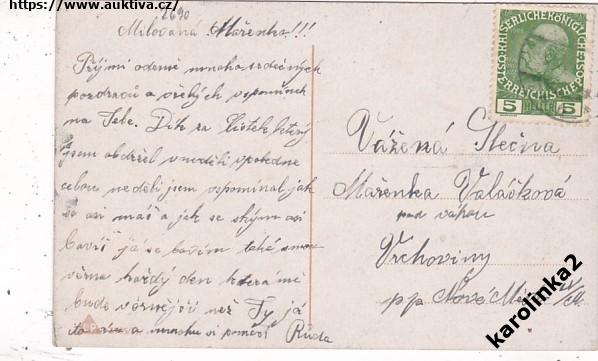 https://www.auktiva.cz/
2690
Milovaná Mařenko!!!
Přijmi odemě mnoho srdečných
pozdravů a vřelých vspomínek
na Tebe. Dík za lístek který
jsem obdržel v neděli spoledne
celou neděli jsem vspomínal jak
se asi máš a jak se s kým asi
bavíš já se bavím také
každý den která mě
bude věrnější než Ty já
to vím a mnoho si poměrí Ruda
KAISERLICHE KÖNIGLICHE
ÖSTERREICHISCHE
5 HELLER 5
Vážená Slečna
Mařenka Valášková
Vrchoviny
p.p. Nové Město
karolinka2